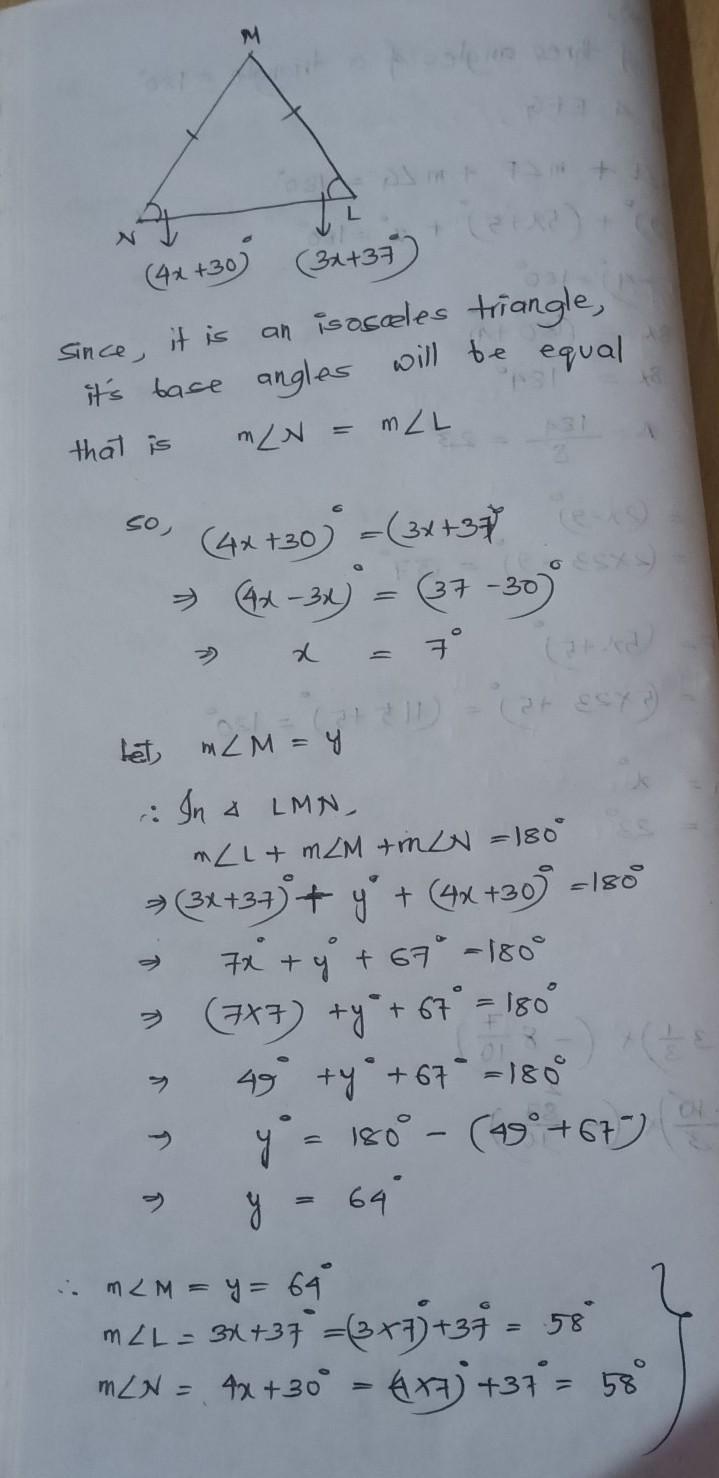 M
N
L
(4x+30)° (3x+37°)
Since, it is an isosceles triangle,
it's base angles will be equal
that is m∠N = m∠L
so, (4x+30)° = (3x+37)°
⇒ (4x-3x)° = (37-30)°
⇒ x = 7°
Let, m∠M = y
∴ In Δ LMN,
m∠L + m∠M + m∠N = 180°
⇒ (3x+37)° + y° + (4x+30)° = 180°
⇒ 7x° + y° + 67° = 180°
⇒ (7×7) + y° + 67° = 180°
⇒ 49° + y° + 67° = 180°
⇒ y° = 180° - (49° + 67°)
⇒ y = 64°
∴ m∠M = y = 64°
m∠L = 3x+37° = (3×7)° + 37° = 58°
m∠N = 4x+30° = (4×7)° + 37° = 58°